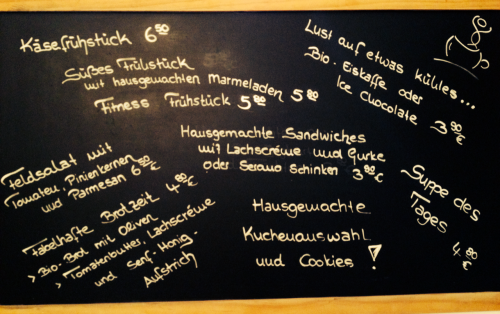 Käsefrühstück 6 50
Süßes Frühstück
mit hausgemachten Marmeladen 5 00
Fitness Frühstück 5 00
Lust auf etwas kühles...
Bio. Eiskaffe oder
Ice Chocolate 3 90 €
Hausgemachte Sandwiches
mit Lachscréme und Gurke
oder Serano Schinken 3 80 €
Feldsalat mit
Tomaten, Pinienkernen
und Parmesan 6 50 €
Fabelhafte Brotzeit 4 80 €
> Bio. Brot mit Oliven
> Tomatenbutter, Lachscréme
und Senf. Honig.
Aufstrich
Hausgemachte
Kuchenauswahl
und Cookies !
Suppe des
Tages
4 80 €